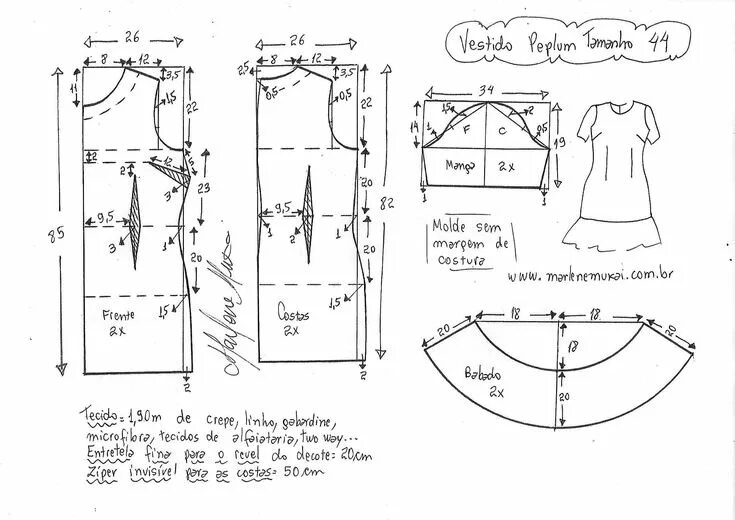 Vestido Peplum Tamanho 44
26
8 12
3,5
11
1,5
22
2
12
5
2
3
23
9,5
3
1
20
1,5
85
Frente
2x
2
26
2,5
8 12
3,5
0,5
0,5
22
20
9,5
1
2
1
20
82
1,5
Costas
2x
2
Marlene Mukai
34
14
1,5
2
1
F C
0,5
19
Manga 2x
1 1
Molde sem
margem de
costura
www.marlenemukai.com.br
18 18
20 20
18
Babado
2x
20
Tecido=1,90m de crepe, linho, gabardine,
microfibra, tecidos de alfaiataria, two way...
Entretela fina para o revel do decote=20cm
Zíper invisível para as costas=50cm